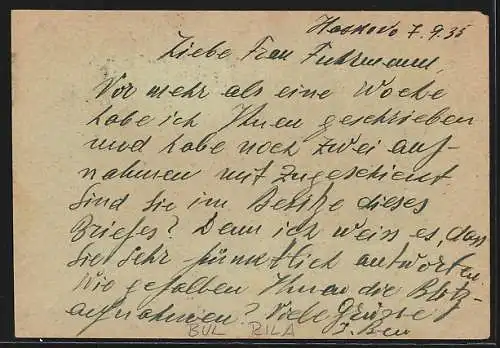 Haskovo 7.9.35
Liebe Frau Fuhrmann,
Vor mehr als eine Woche
habe ich Ihnen geschrieben
und habe noch zwei auf-
nahmen mit zugeschickt
Sind Sie im Besitze dieses
Briefes? Denn ich weis es, dass
Sie Sehr pünktlich antworten.
Wie gefallen Ihnen die Blitz-
aufnahmen? Viele Grüsse
BUL RILA